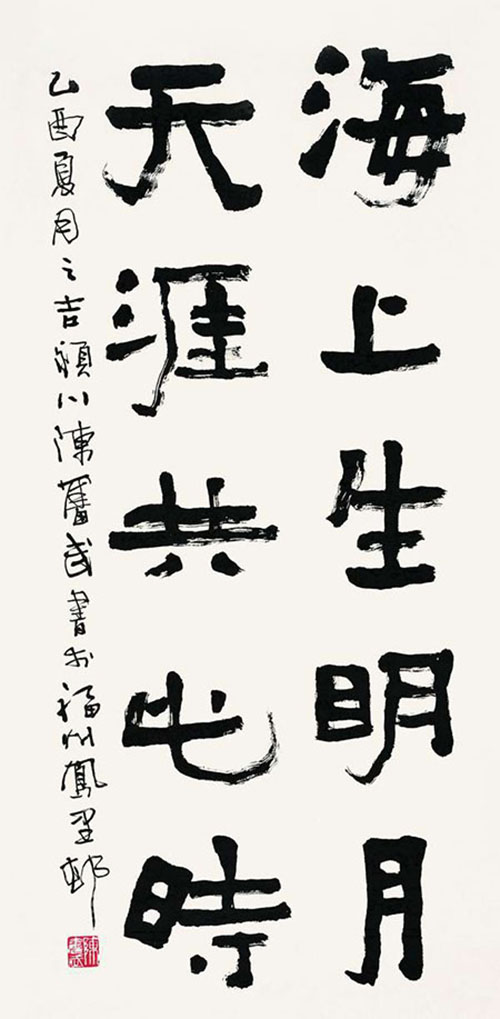 海上生明月
天涯共此時
乙酉夏月之吉潁川陳奮武書於福州鳳邨